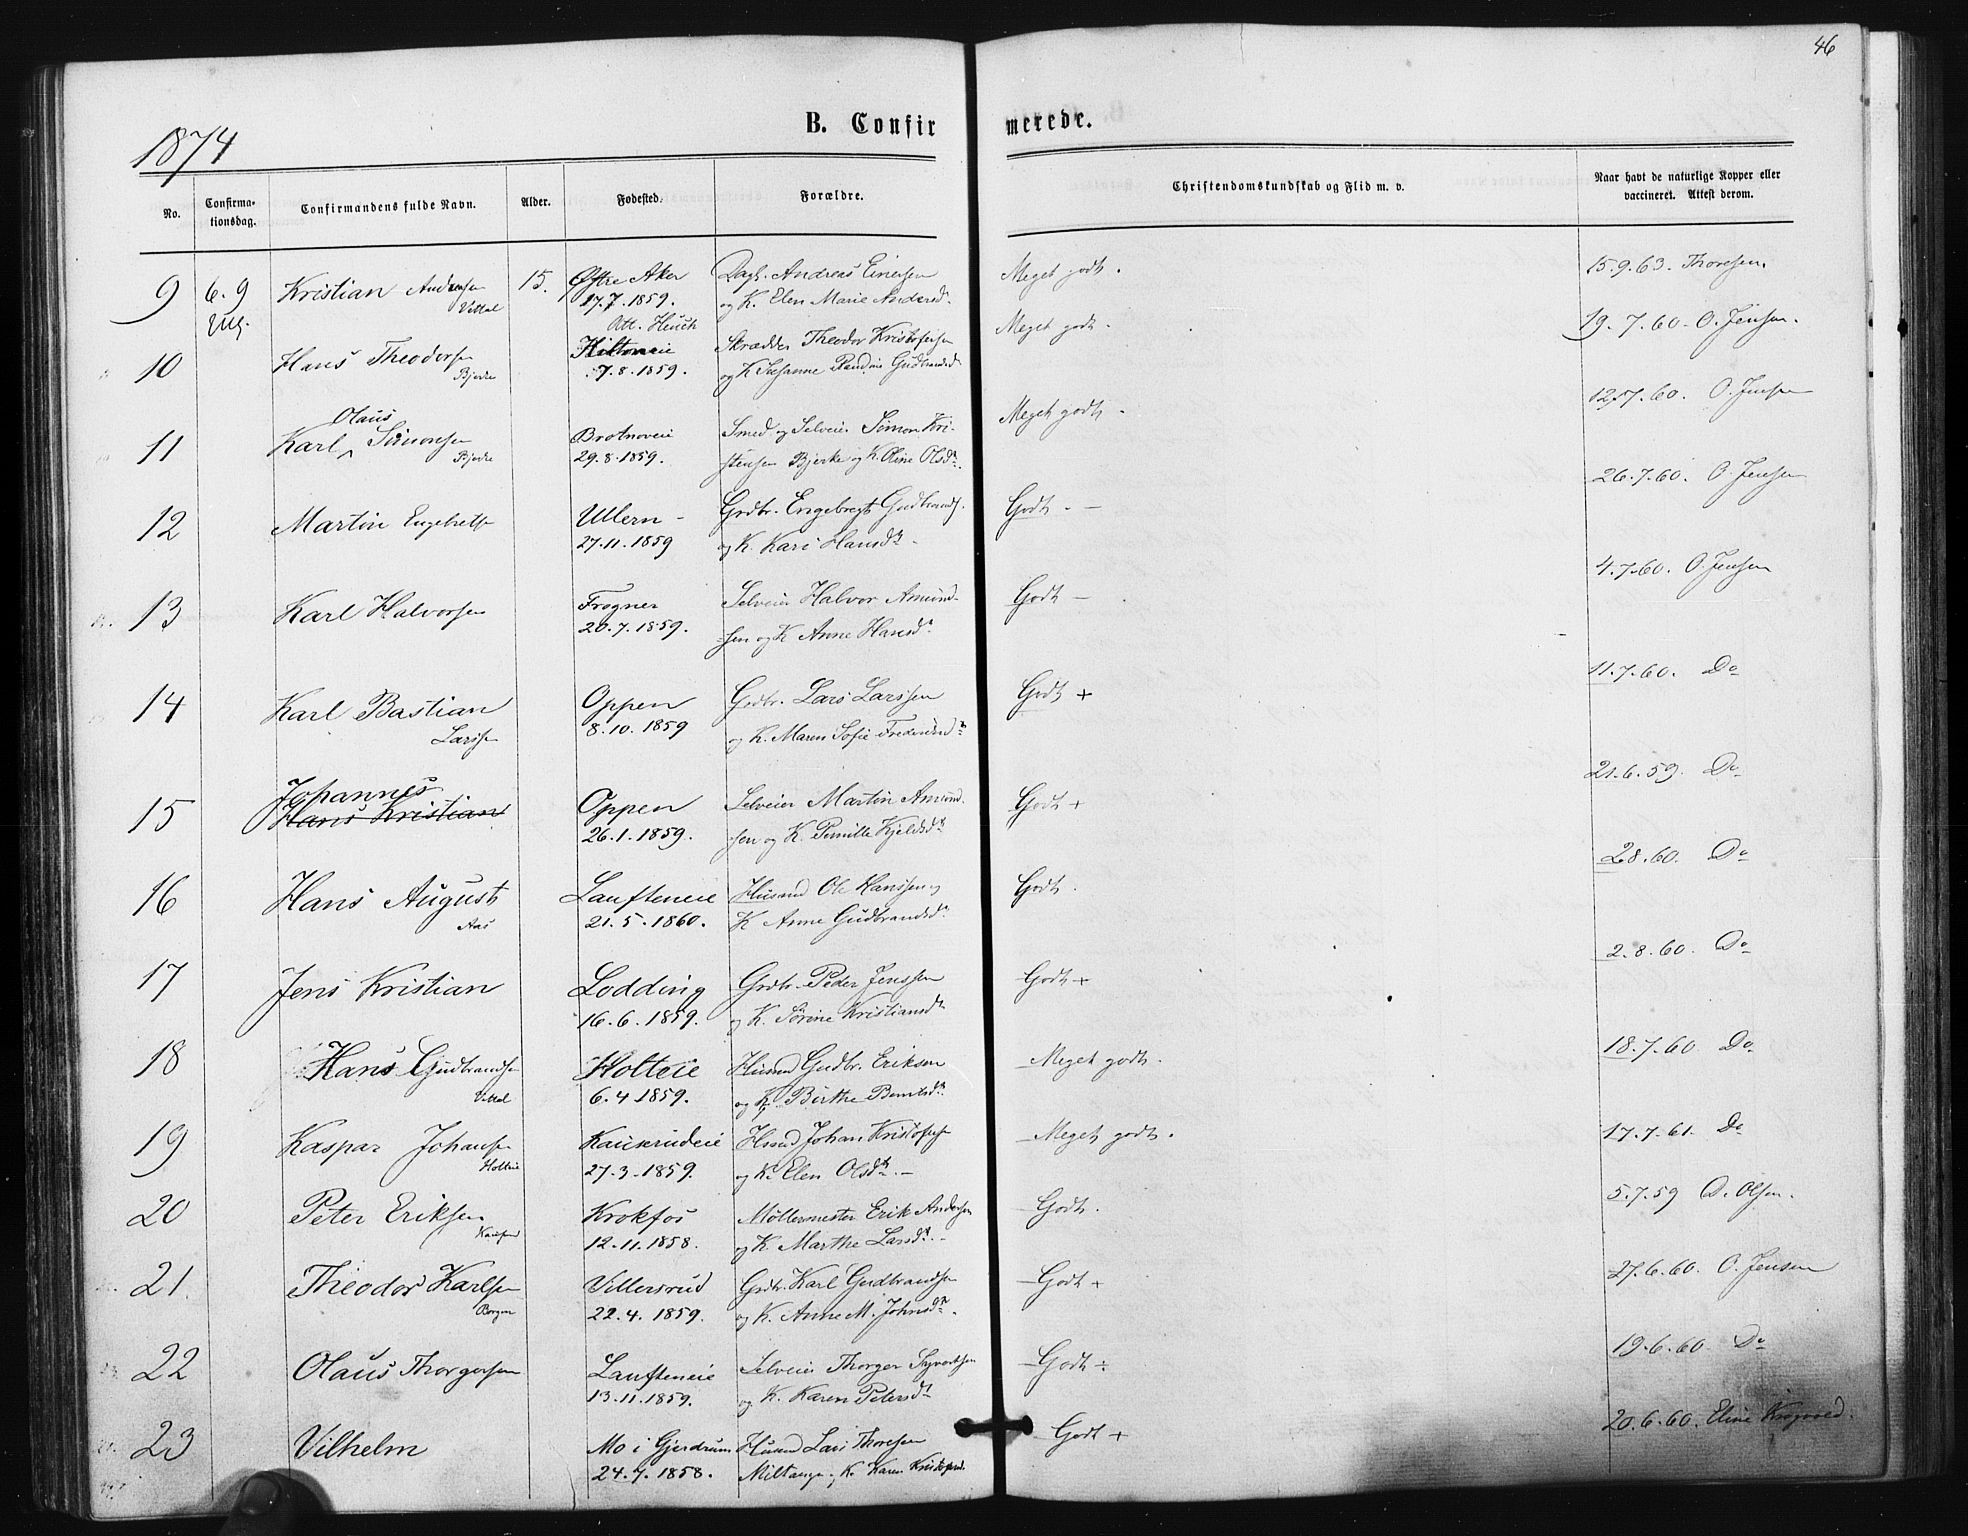 46
1874
B. Confirmerede.
No.
Confirmationsdag.
Confirmandens fulde Navn.
Alder.
Fødested.
Forældre.
Christendomskundskab og Flid m. v.
Naar havt de naturlige Kopper eller vaccineret. Attest derom.
9 6.9 Kristian Andersen 15. Østre Aker Dagl. Andreas Einersen Meget godt. 15.9.63. Thoresen
17.7.1859. og K. Elen Marie Andersd.
Att. Heuch
10 Hans Theodorsen Skrædder Theodor Kristofersen Meget godt. 19.7.60. O. Jensen.
Bjerke 7.8.1859. og K. Susanne Gudbrandsd.
Olaus
11 Karl Simonsen Brotnoveie Smed og Selveier Simon Kri- Meget godt. 12.7.60. O. Jensen
Bjerke 29.8.1859. stensen Bjerke og K. Oline Olsdr.
12 Martin Engebrets Ullern Grdbr. Engebregt Gudbrands. Godt. - 26.7.60. O. Jensen
27.11.1859 og K. Kari Hansdr.
13 Karl Halvorsen Frogner Selveier Halvor Amund- Godt - 4.7.60. O. Jensen
20.7.1859. sen og K Anne Hansdr.
14 Karl Bastian Oppen Grdbr. Lars Larssen Godt + 11.7.60. Do
Larssen 8.10.1859 og K. Maren Sofie
Johannes
15 Hans Kristian Oppen Selveier Martin Amund- Godt + 21.6.59. Do
26.1.1859. sen og K. Pernille Kjeldsdr
16 Hans August Laufteneie Husmd Ole Hanssen og Godt. 2.8.60. Do
Aas 21.5.1860. K Anne Gudbrandsdr.
17 Jens Kristian Lodding Grdbr. Peder Jenssen Godt + 2.8.60. Do
16.6.1859. og K. Sørine Kristiansdr
18 Hans Gudbrandsen Holteie Husmd Gudbr. Eriksen Meget godt. 18.7.60. Do
6.4.1859. og K. Birthe Berntsdr.
19 Kaspar Johansen Kauserudeie Husmd Johan Kristofers Meget godt. 17.7.61. Do
Holteie 27.3.1859. og K. Elen Olsdr. -
20 Peter Eriksen Krokfos Møllermester Erik Andersen Godt. 5.7.59 D. Olsen.
12.11.1858. og K. Marthe Larsdr. -
21. Theodor Karlsen Villersrud Grdbr. Karl Gudbrandsen Godt + 27.6.60. O. Jensen
Borgen 22.4.1859. og K. Anne M. Johnsdr.
22 Olaus Thorgersen Laufteneie Selveier Thorger Syvertsen Godt ÷ 19.6.60. Do
13.11.1859. og K. Karen Petersdr
23 Vilhelm Mo i Gjerdrum Husmd Lars Thoresen Godt + 20.6.60. Eline Krogvold.
24.7.1858. og K. Karen Kristofersd.